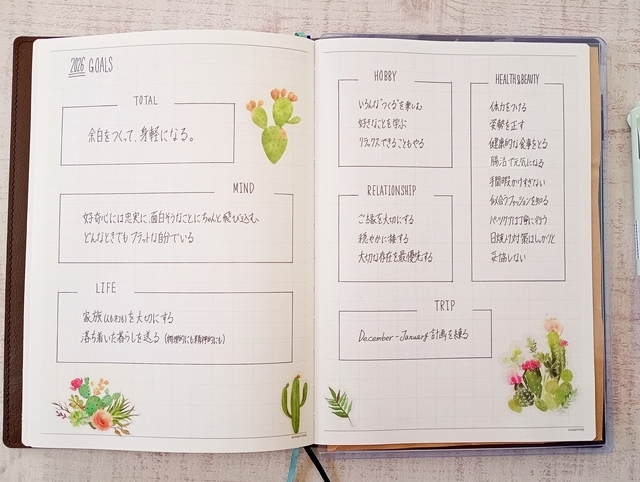 2026 GOALS
TOTAL
余白をつくって、身軽になる。
MIND
好奇心には忠実に、面白そうなことにちゃんと飛び込む。
どんなときでもフラットな自分でいる
LIFE
家族(いもむす)を大切にする
落ち着いた暮らしを送る (物理的にも精神的にも)
HOBBY
いろんな"つくる"を楽しむ
好きなことを学ぶ
リラックスできることもやる
RELATIONSHIP
ご縁を大切にする
穏やかに接する
大切な存在を最優先する
TRIP
December-January 計画を練る
HEALTH&BEAUTY
体力をつける
姿勢を正す
健康的な食事をとる
腸活で元気になる
手間暇かけすぎない
似合うファッションを知る
パックは丁寧に行う
日焼け対策はしっかりと
妥協しない